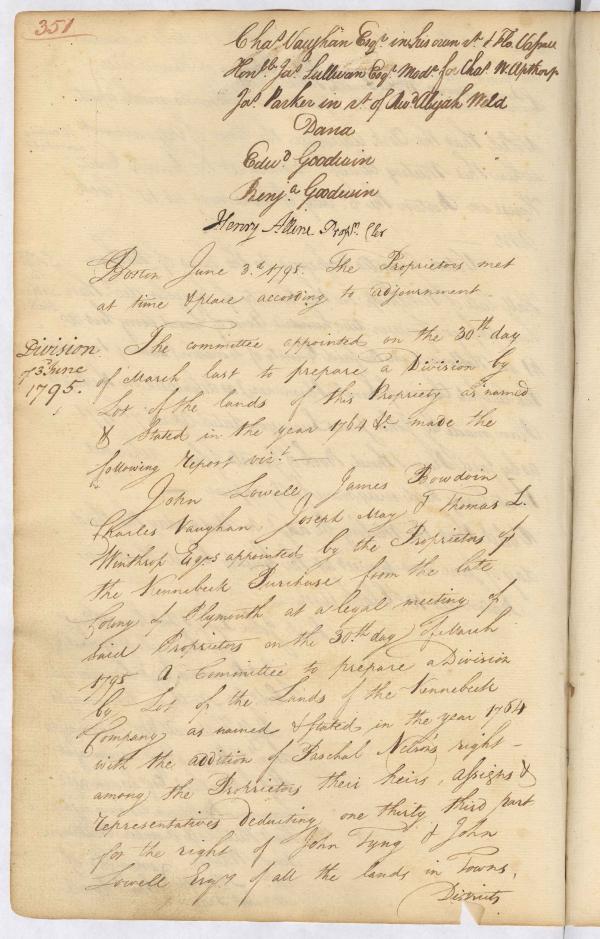 351
Chas. Vaughan Esqr. in his own rt. & Tho. Vasme
Honble. Jas. Sullivan Esqr. Modr. for Chas. W. Apthorp
Jas. Parker in rt. of Revd. Abijah Weld
Dana
Edwd. Goodwin
Benja. Goodwin
Henry Alline Proprs. Cler
Boston June 3.d 1795. The Proprietors met
at time & place according to adjournment.
Division
of 3d. June
1795.
The committee appointed on the 30th. day
of March last to prepare a Division by
Lot of the lands of this Propriety as named
& Stated in the year 1764 &c. made the
following report vizt.
John Lowell, James Bowdoin
Charles Vaughan, Joseph May & Thomas L.
Winthrop Esqrs appointed by the Proprietors of
the Kennebeck Purchase from the late
Colony of Plymouth at a legal meeting of
said Proprietors on the 30th. day of March
1795 a Committee to prepare a Division
by Lot of the Lands of the Kennebeck
Company as named & stated in the year 1764
with the addition of Paschal Nelson's right -
among the Proprietors their heirs, assigns &
representatives deducting one thirty third part
for the right of John Tyng & John
Lowell Esqrs of all the lands in Towns,
Districts